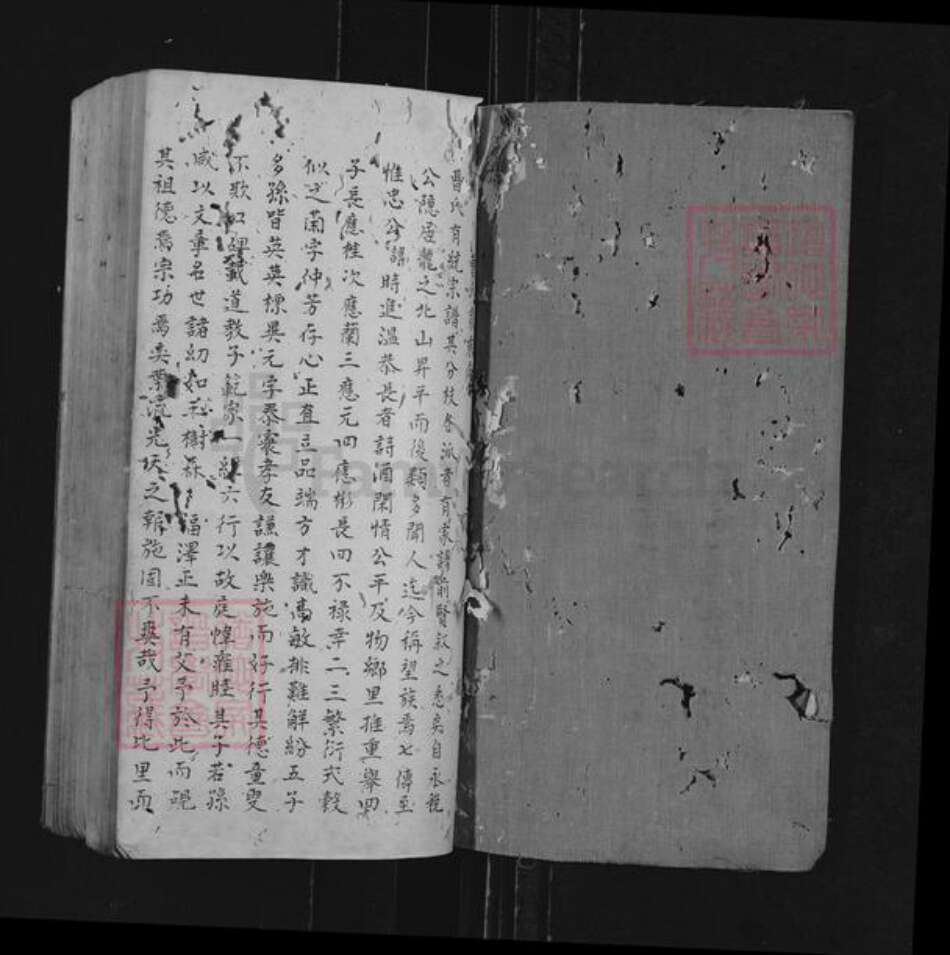 曹氏有統宗譜其分枝各派者有家譜前賢叙之悉矣自永稅
公隱居龍之北山昇平而後類多聞人迄今稱望族焉七傳至
惟忠公諱時進溫恭長者詩酒閑情公平及物鄉里推重舉四
子長應桂次應蘭三應元四應彬長四不祿幸二三繁衍式穀
似之蘭字仲芳存心正直立品端方才識高敏排難解紛五子
多孫皆英英標異元字泰寰孝友謙讓樂施而好行其德童叟
不欺口碑載道教子範家一組六行以故庭幃雍睦其子若孫
咸以文章名世諸幼如玉樹森福澤正未有艾予於此而硯
其祖德焉宗功焉奕葉流光天之報施固不爽哉予得比里而